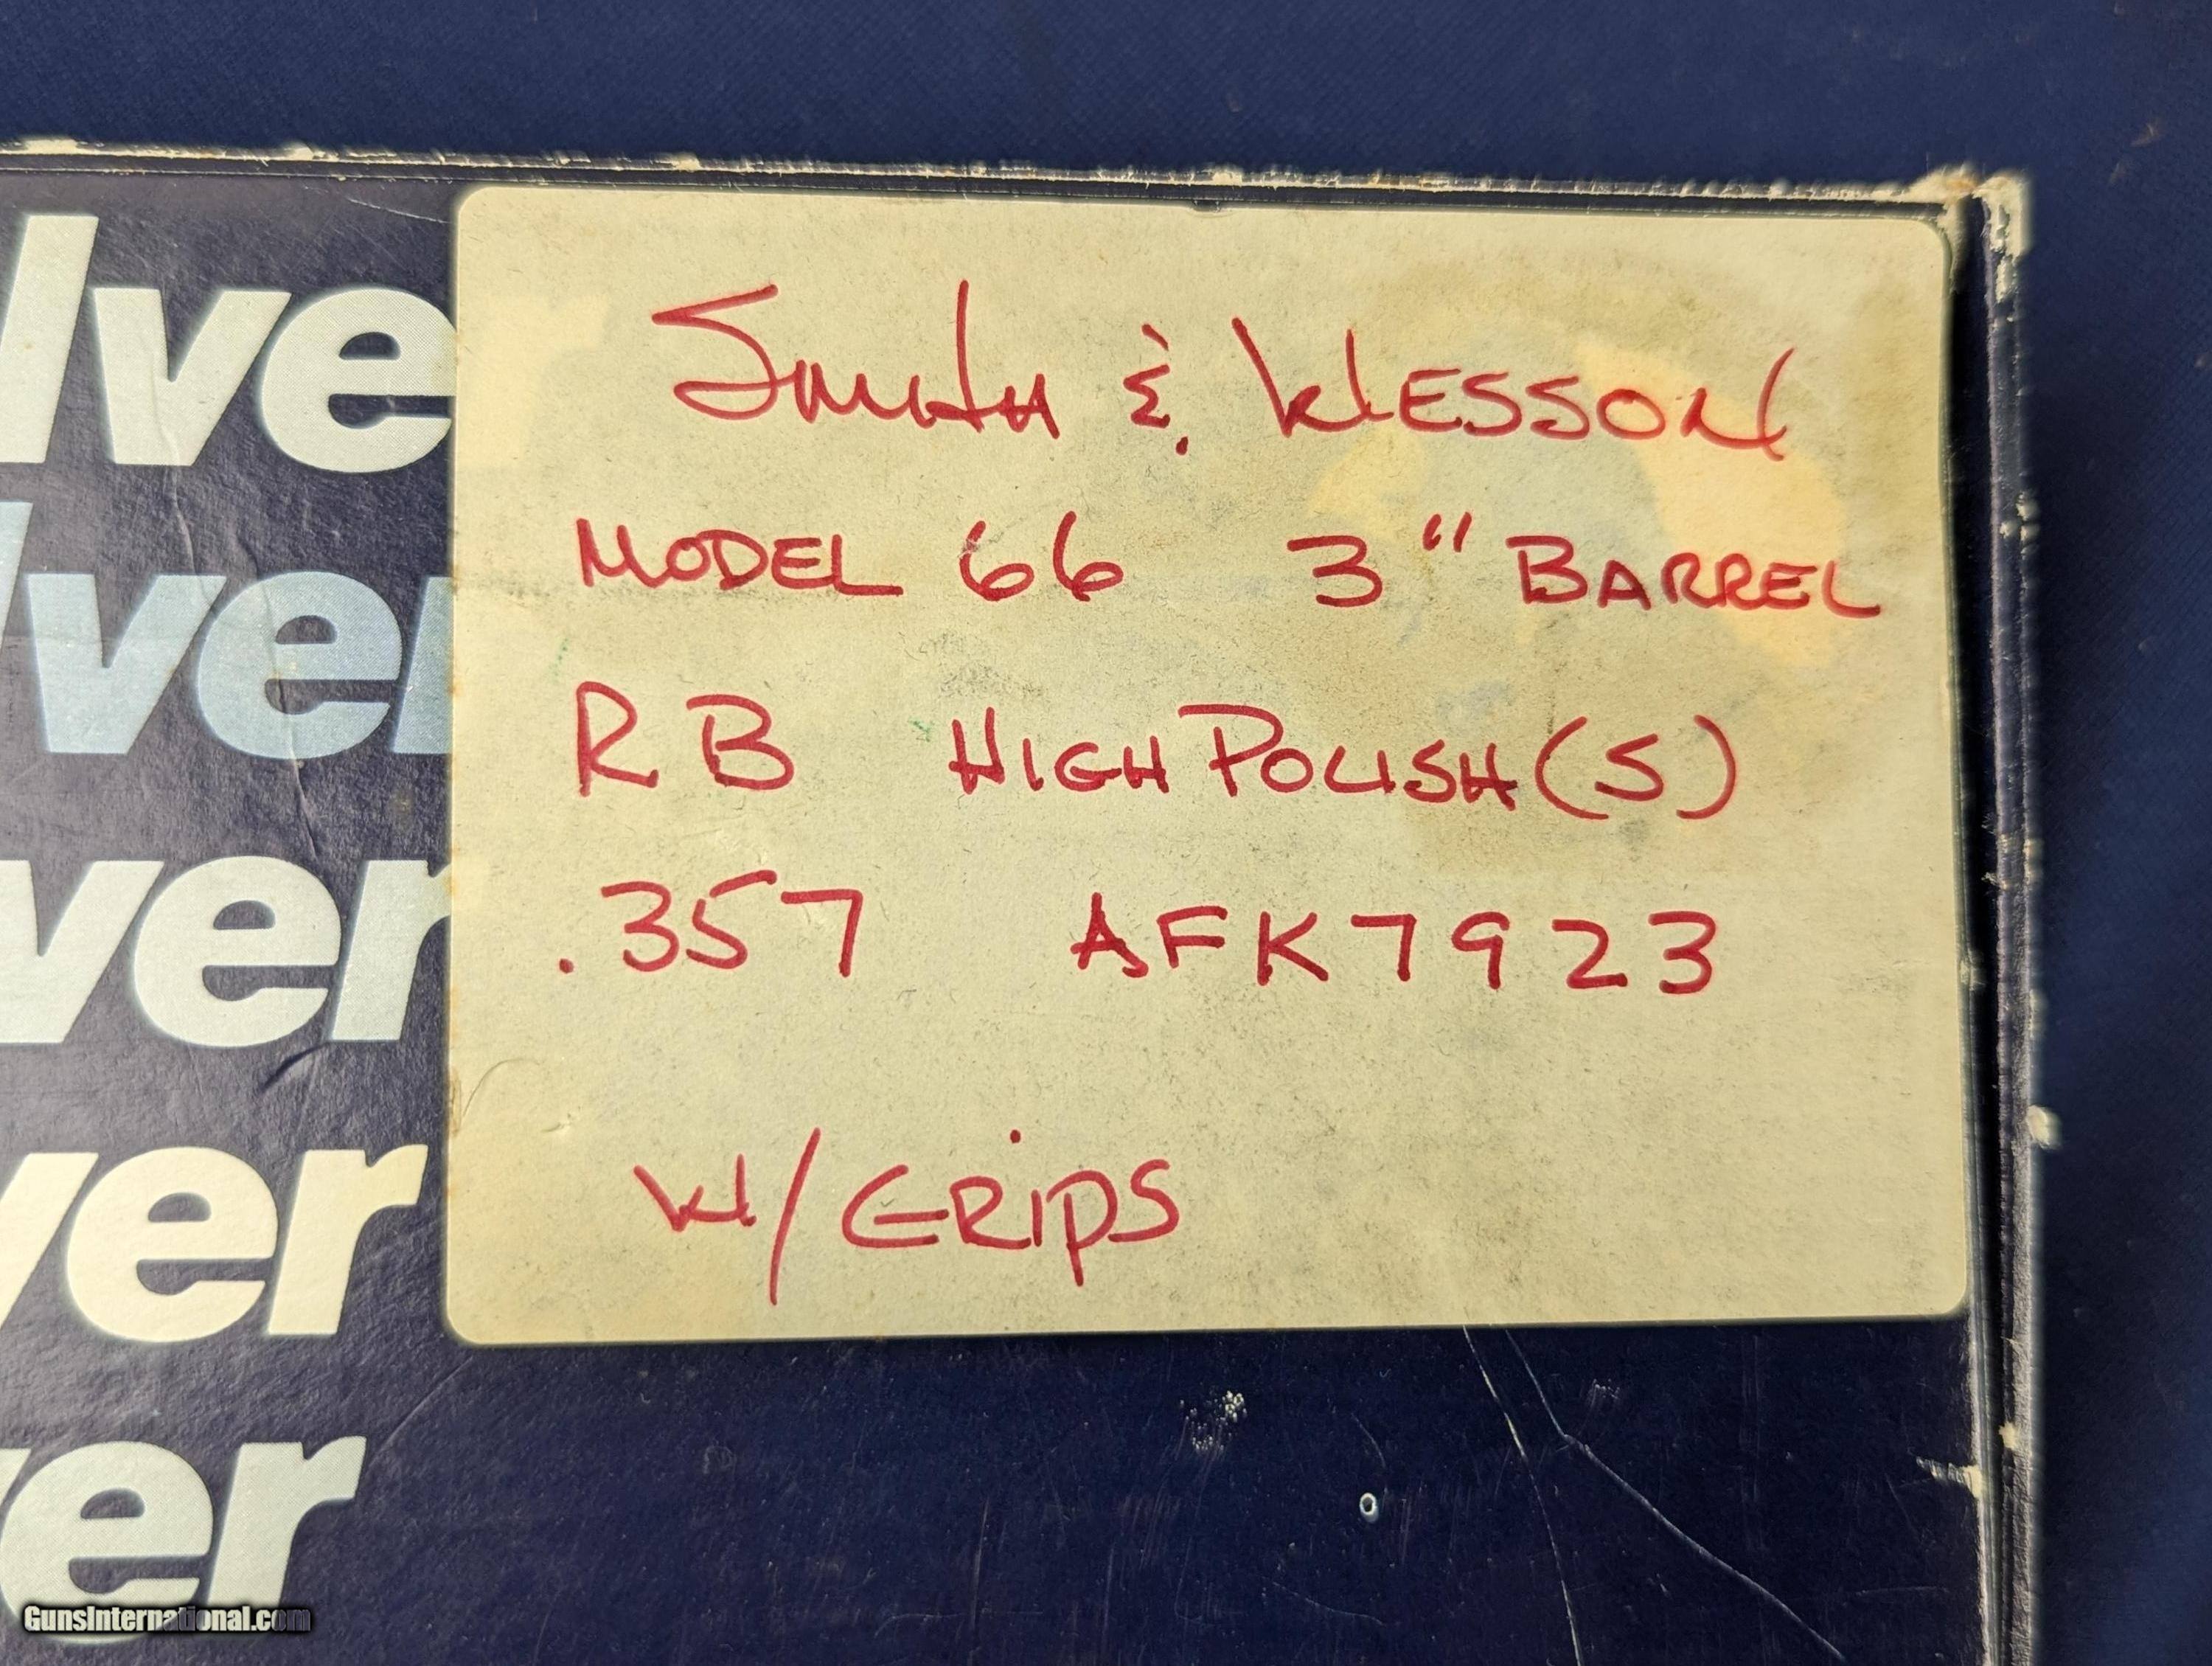 Smith & Wesson
MODEL 66 3" BARREL
RB HIGH POLISH (S)
.357 AFK7923
W/ GRIPS
lver
lver
ver
ver
er
GunsInternational.com